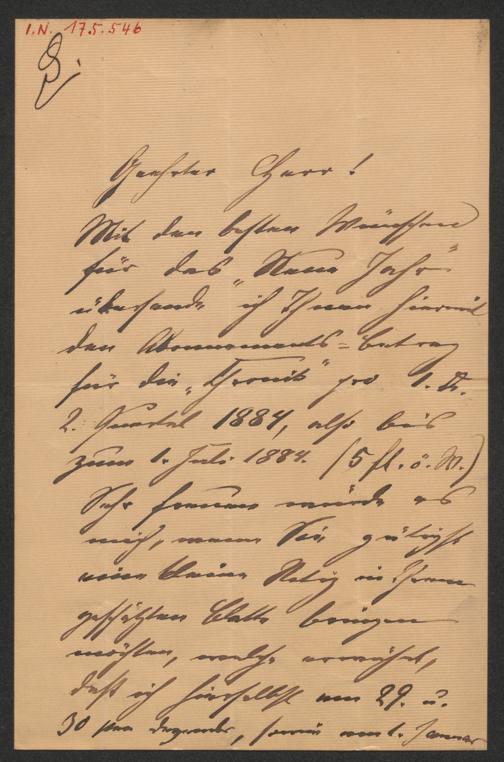 I.N. 175.546
Geehrter Herr!
Mit den besten Wünschen
für das "Neue Jahr"
übersende ich Ihnen hiermit
den Abonnements=betrag
für die "Chronik" pro 1. u.
2. Quartal 1884, also bis
zum 1. Juli 1884. (5 fl. ö. W.)
Sehr freuen würde es
mich, wenn Sie gütigst
eine kleine Notiz in Ihrem
geschätzten Blatte bringen
möchten, welche erwähnt,
daß ich hierselbst am 29. u.
30 sten Dezember, sowie am 1. Januar